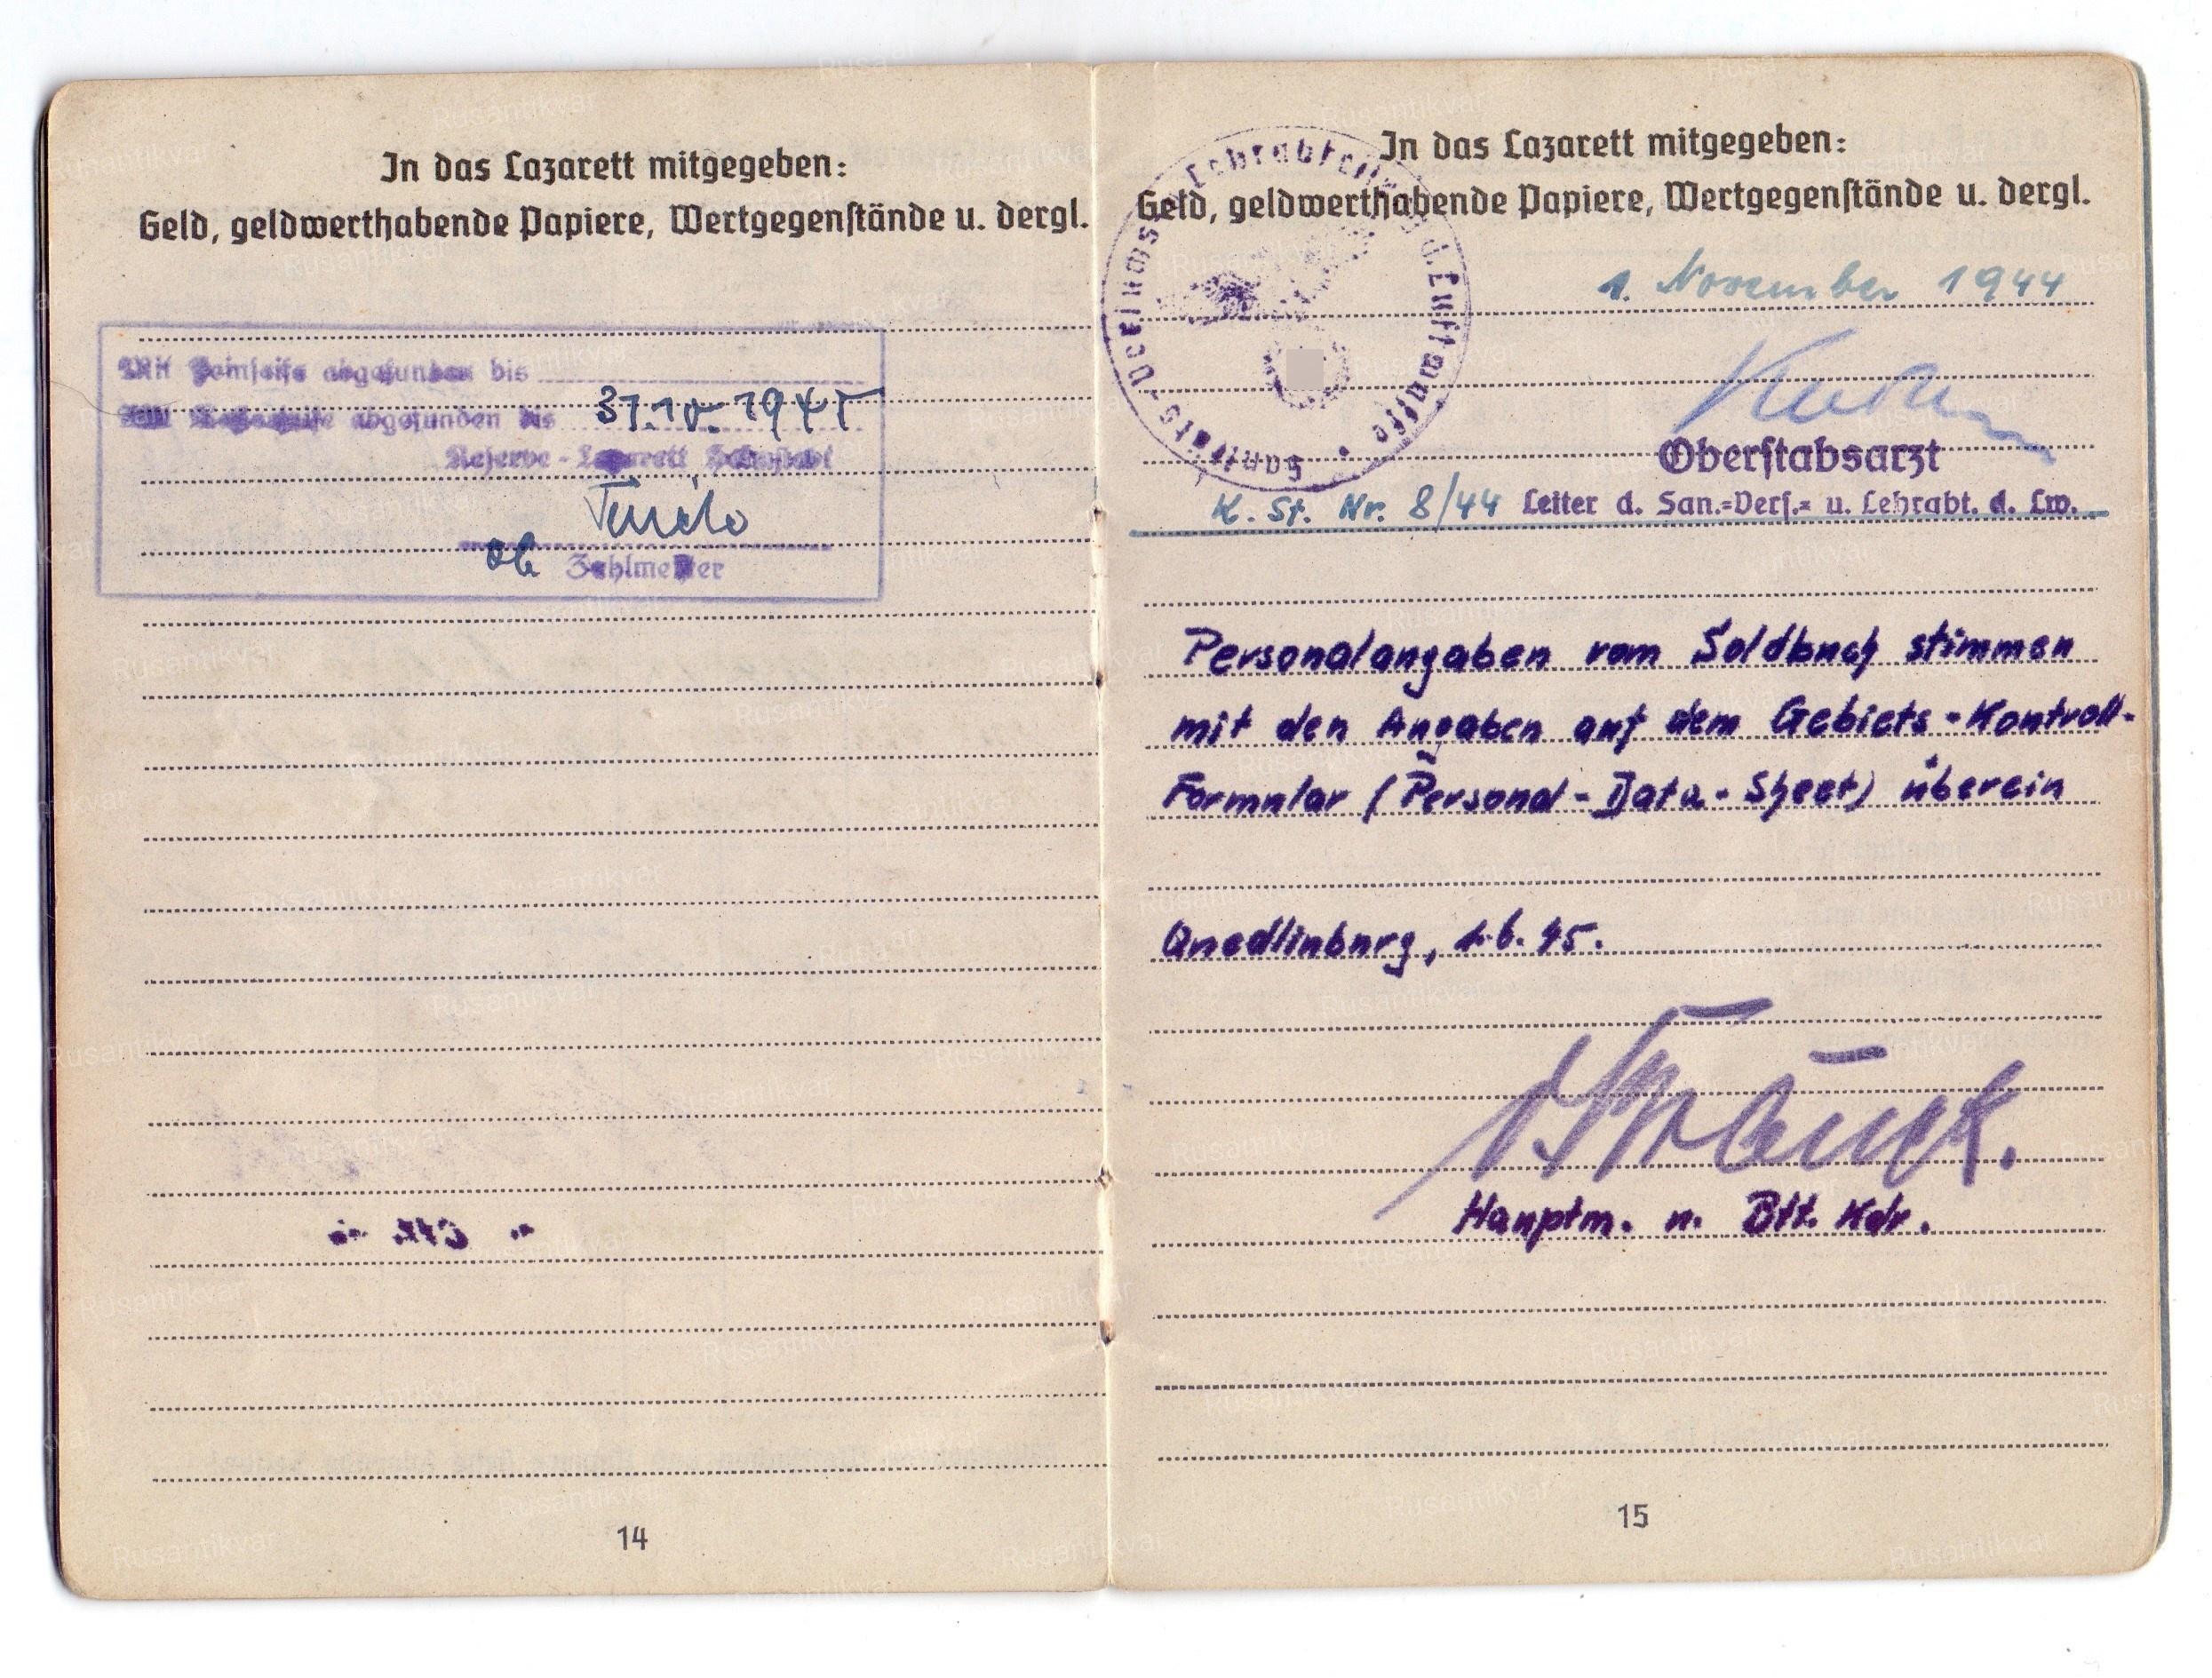 In das Lazarett mitgegeben:
Geld, geldwerthabende Papiere, Wertgegenstände u. dergl.
Mit Feinseife abgefunden bis
abgefunden bis 31.10.1945
Reserve-Lazarett
Zahlmeister
14
In das Lazarett mitgegeben:
Geld, geldwerthabende Papiere, Wertgegenstände u. dergl.
Sanitäts-Versuchs- u. Lehrabteilung d. Luftwaffe
1. November 1944
Oberstabsarzt
K. St. Nr. 8/44 Leiter d. San.-Vers.- u. Lehrabt. d. Lw.
Personalangaben vom Soldbuch stimmen
mit den Angaben auf dem Gebiets-Kontroll-
Formular (Personal-Data-Sheet) überein
Quedlinburg, 1.6.45.
Hauptm. u. Btt. Kdr.
15
Rusantikvar